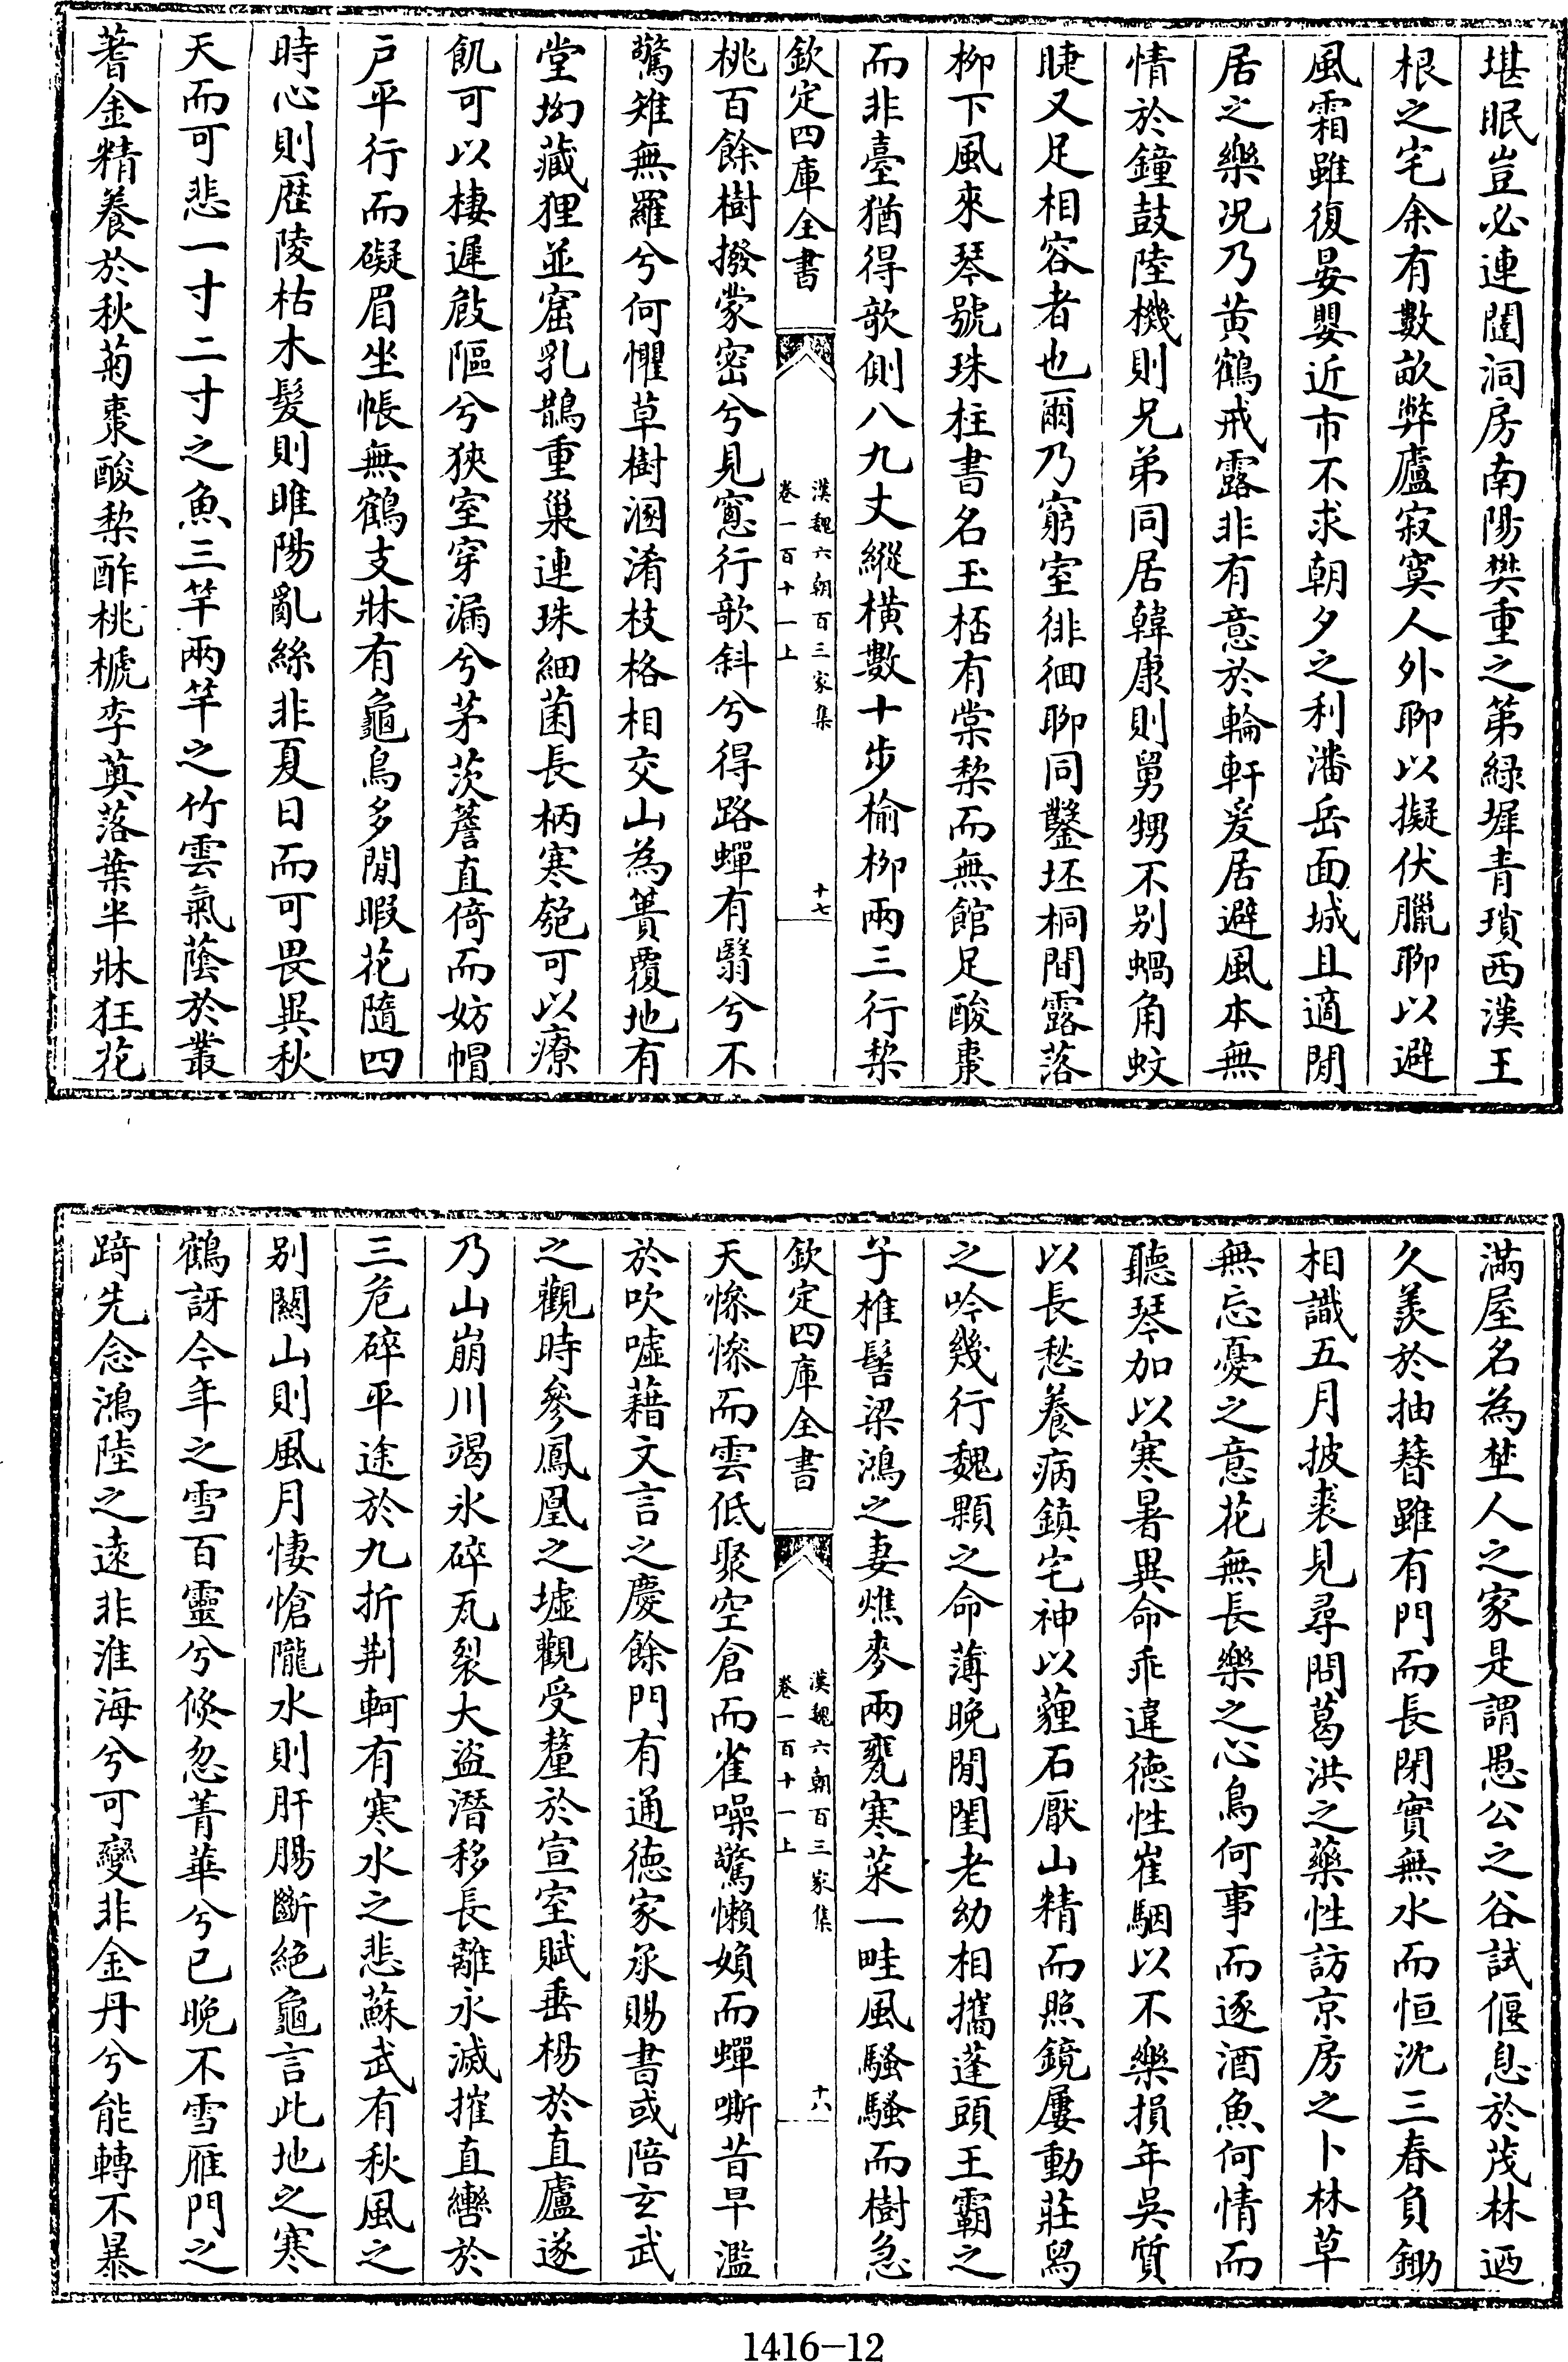 堪眠豈必連闥洞房南陽樊重之第緑墀青瑣西漢王
根之宅余有數畝弊廬寂寞人外聊以擬伏臘聊以避
風霜雖復晏嬰近市不求朝夕之利潘岳面城且適閒
居之樂况乃黄鶴戒露非有意於輪軒爰居避風本無
情於鐘鼓陸機則兄弟同居韓康則舅甥不别蝸角蚊
睫又足相容者也爾乃窮室徘徊聊同鑿坯桐間露落
柳下風來琴號珠柱書名玉杯有棠棃而無館足酸棗
而非臺猶得欹側八九丈縱横數十步榆柳兩三行棃
欽定四庫全書
漢魏六朝百三家集
卷一百十一上
十七
桃百餘樹撥蒙密兮見窻行欹斜兮得路蟬有翳兮不
驚雉無羅兮何懼草樹溷淆枝格相交山為簣覆地有
堂坳藏狸並窟乳鵲重巢連珠細菌長柄寒匏可以療
飢可以棲遲㩻䧢兮狹室穿漏兮茅茨簷直倚而妨帽
户平行而礙眉坐帳無鶴支牀有龜鳥多閒暇花隨四
時心則歴陵枯木髮則睢陽亂絲非夏日而可畏異秋
天而可悲一寸二寸之魚三竿兩竿之竹雲氣蔭於叢
蓍金精養於秋菊棗酸棃酢桃榹李薁落葉半牀狂花
滿屋名為埜人之家是謂愚公之谷試偃息於茂林迺
久羨於抽簪雖有門而長閉實無水而恒沈三春負鋤
相識五月披裘見尋問葛洪之藥性訪京房之卜林草
無忘憂之意花無長樂之心鳥何事而逐酒魚何情而
聽琴加以寒暑異命乖違徳性崔駰以不樂損年吳質
以長愁養病鎮宅神以薶石厭山精而照鏡屢動莊舄
之吟幾行魏顆之命薄晚閒閨老幼相攜蓬頭王霸之
子椎髻梁鴻之妻燋麥兩甕寒菜一畦風騷騷而樹急
欽定四庫全書
漢魏六朝百三家集
卷一百十一上
十八
天慘慘而雲低聚空倉而雀噪驚懶婦而蟬嘶昔早濫
於吹嘘藉文言之慶餘門有通徳家承賜書或陪玄武
之觀時參鳳凰之墟觀受釐於宣室賦垂楊於直廬遂
乃山崩川竭氷碎瓦裂大盜潛移長離永滅摧直轡於
三危碎平途於九折荆軻有寒水之悲蘇武有秋風之
别關山則風月悽愴隴水則肝腸斷絶龜言此地之寒
鶴訝今年之雪百靈兮倐忽菁華兮已晚不雪雁門之
踦先念鴻陸之遠非淮海兮可變非金丹兮能轉不暴
1416-12